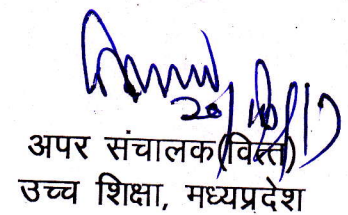 20/10/17
अपर संचालक(वित्त)
उच्च शिक्षा, मध्यप्रदेश